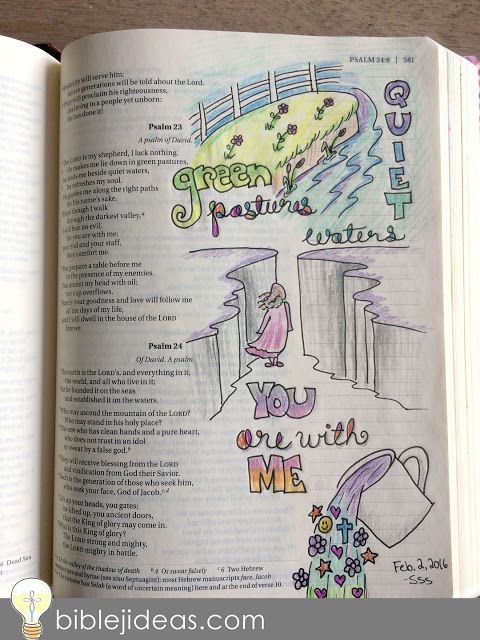 PSALM 24:8 | 581
will serve him;
generations will be told about the Lord.
will proclaim his righteousness,
to a people yet unborn:
has done it!
Psalm 23
A psalm of David.
The LORD is my shepherd, I lack nothing.
He makes me lie down in green pastures,
leads me beside quiet waters,
he refreshes my soul.
guides me along the right paths
for his name's sake.
Even though I walk
through the darkest valley,ᵃ
I will fear no evil,
for you are with me;
your rod and your staff,
they comfort me.
You prepare a table before me
in the presence of my enemies.
You anoint my head with oil;
my cup overflows.
Surely your goodness and love will follow me
all the days of my life,
and I will dwell in the house of the LORD
forever.
Psalm 24
Of David. A psalm.
The earth is the LORD's, and everything in it,
the world, and all who live in it;
for he founded it on the seas
and established it on the waters.
Who may ascend the mountain of the LORD?
Who may stand in his holy place?
The one who has clean hands and a pure heart,
who does not trust in an idol
or swear by a false god.ᵇ
They will receive blessing from the LORD
and vindication from God their Savior.
Such is the generation of those who seek him,
who seek your face, God of Jacob.ᶜ,ᵈ
Lift up your heads, you gates;
be lifted up, you ancient doors,
that the King of glory may come in.
Who is this King of glory?
The LORD strong and mighty,
the LORD mighty in battle.
the valley of the shadow of death b 4 Or swear falsely c 6 Two Hebrew
and Syriac (see also Septuagint); most Hebrew manuscripts face, Jacob
Hebrew has Selah (a word of uncertain meaning) here and at the end of verse 10.
6 Dead Sea
QUIET
green
pastures
waters
YOU
are with
ME
Feb. 2, 2016
-SSS
biblejideas.com